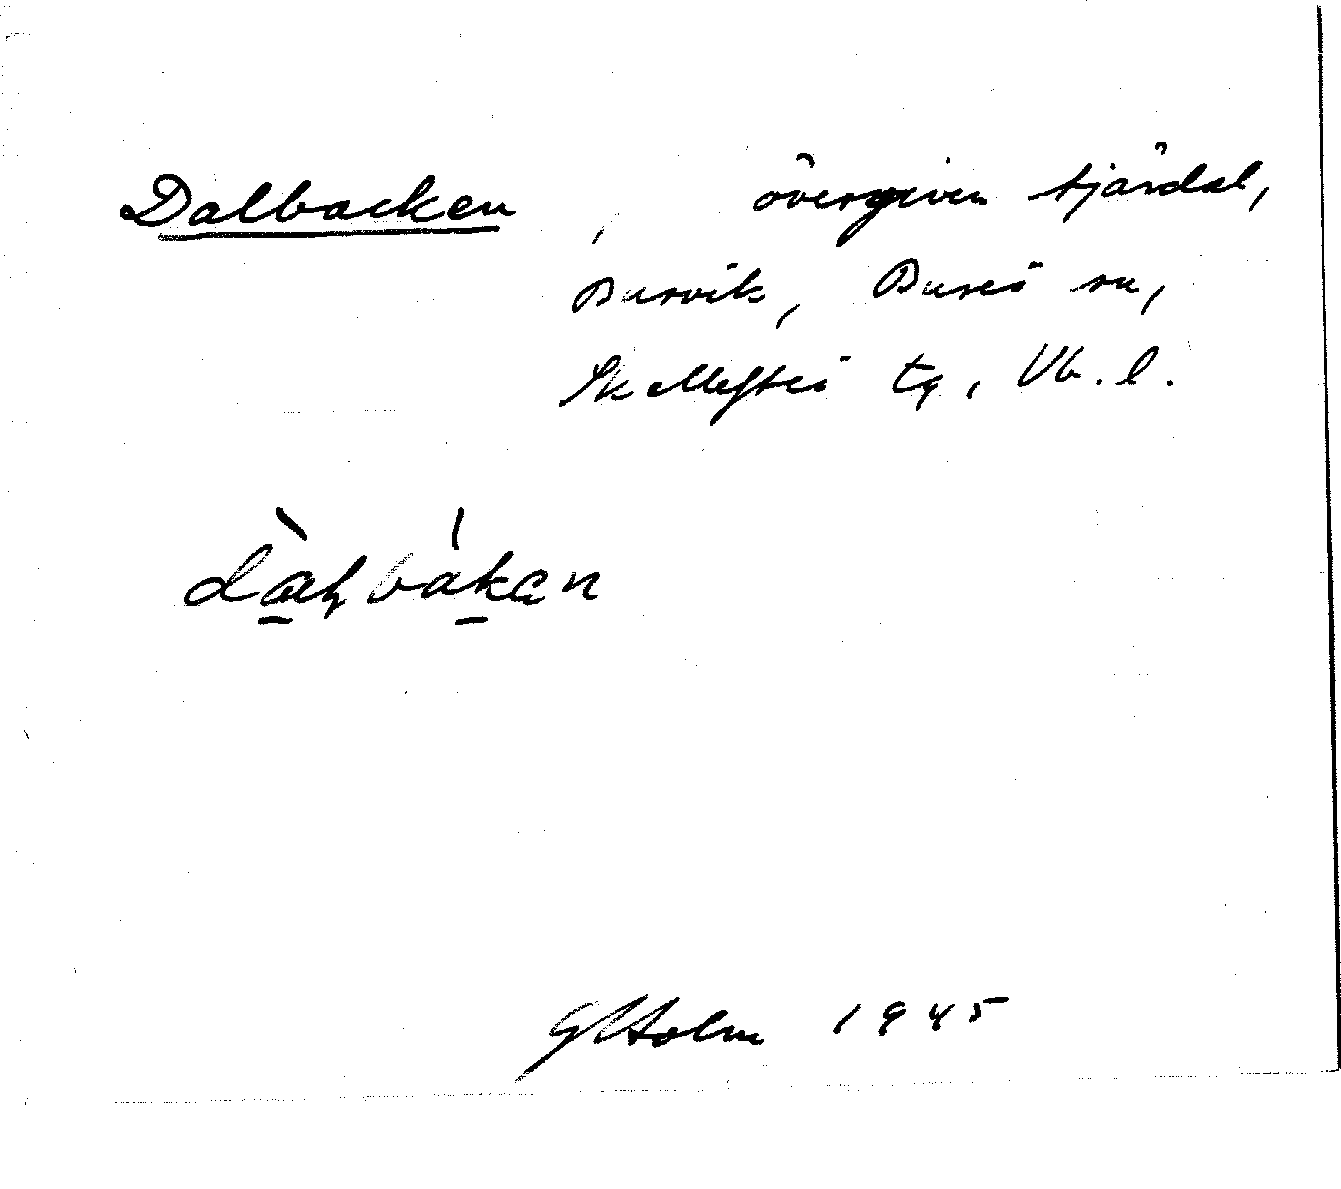 Dalbacken, övergiven tjärdal,
Burvik, Bureå sn,
Skellefteå tg, Vb. l.
GHolm 1945